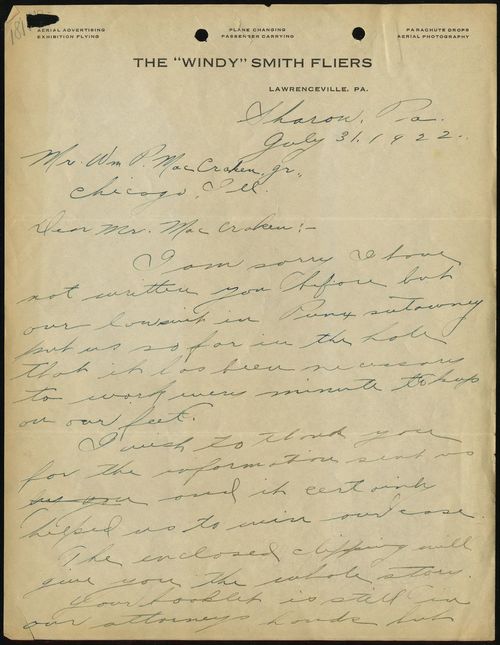 AERIAL ADVERTISING
EXHIBITION FLYING
PLANE CHANGING
PASSENGER CARRYING
PARACHUTE DROPS
AERIAL PHOTOGRAPHY
THE "WINDY" SMITH FLIERS
LAWRENCEVILLE, PA.
Sharon, Pa.
July 31, 1922.
Mr. Wm P. MacCraken, Jr.,
Chicago, Ill.
Dear Mr. MacCraken:-
I am sorry I have
not written you before but
our lawsuit in Punxsutawney
put us so far in the hole
that it has been necessary
to work every minute to keep
on our feet.
I wish to thank you
for the information sent us
and it certainly
helped us to win our case.
The enclosed clipping will
give you the whole story.
Your booklet is still in
our attorneys hands but